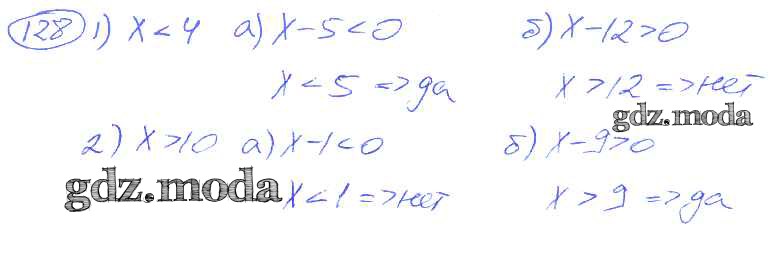 128 1) x < 4 а) x - 5 < 0 б) x - 12 > 0
x < 5 => да x > 12 => нет
gdz.moda
2) x > 10 а) x - 1 < 0 б) x - 9 > 0
gdz.moda
x < 1 => нет x > 9 => да